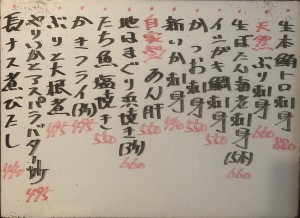 生本鮪トロ刺身 880
天然ぶり刺身 660
生ぼたん海老刺身(5本) 660
イシガキ鯛刺身 550
かつお刺身 550
新いか刺身
自家製あん肝 550
地はまぐり浜焼き(3ケ) 660
たち魚塩焼き 550
かきフライ(3ケ) 495
ぶり大根煮 495
やりいかとアスパラバター炒 495
長ナス煮びたし 440